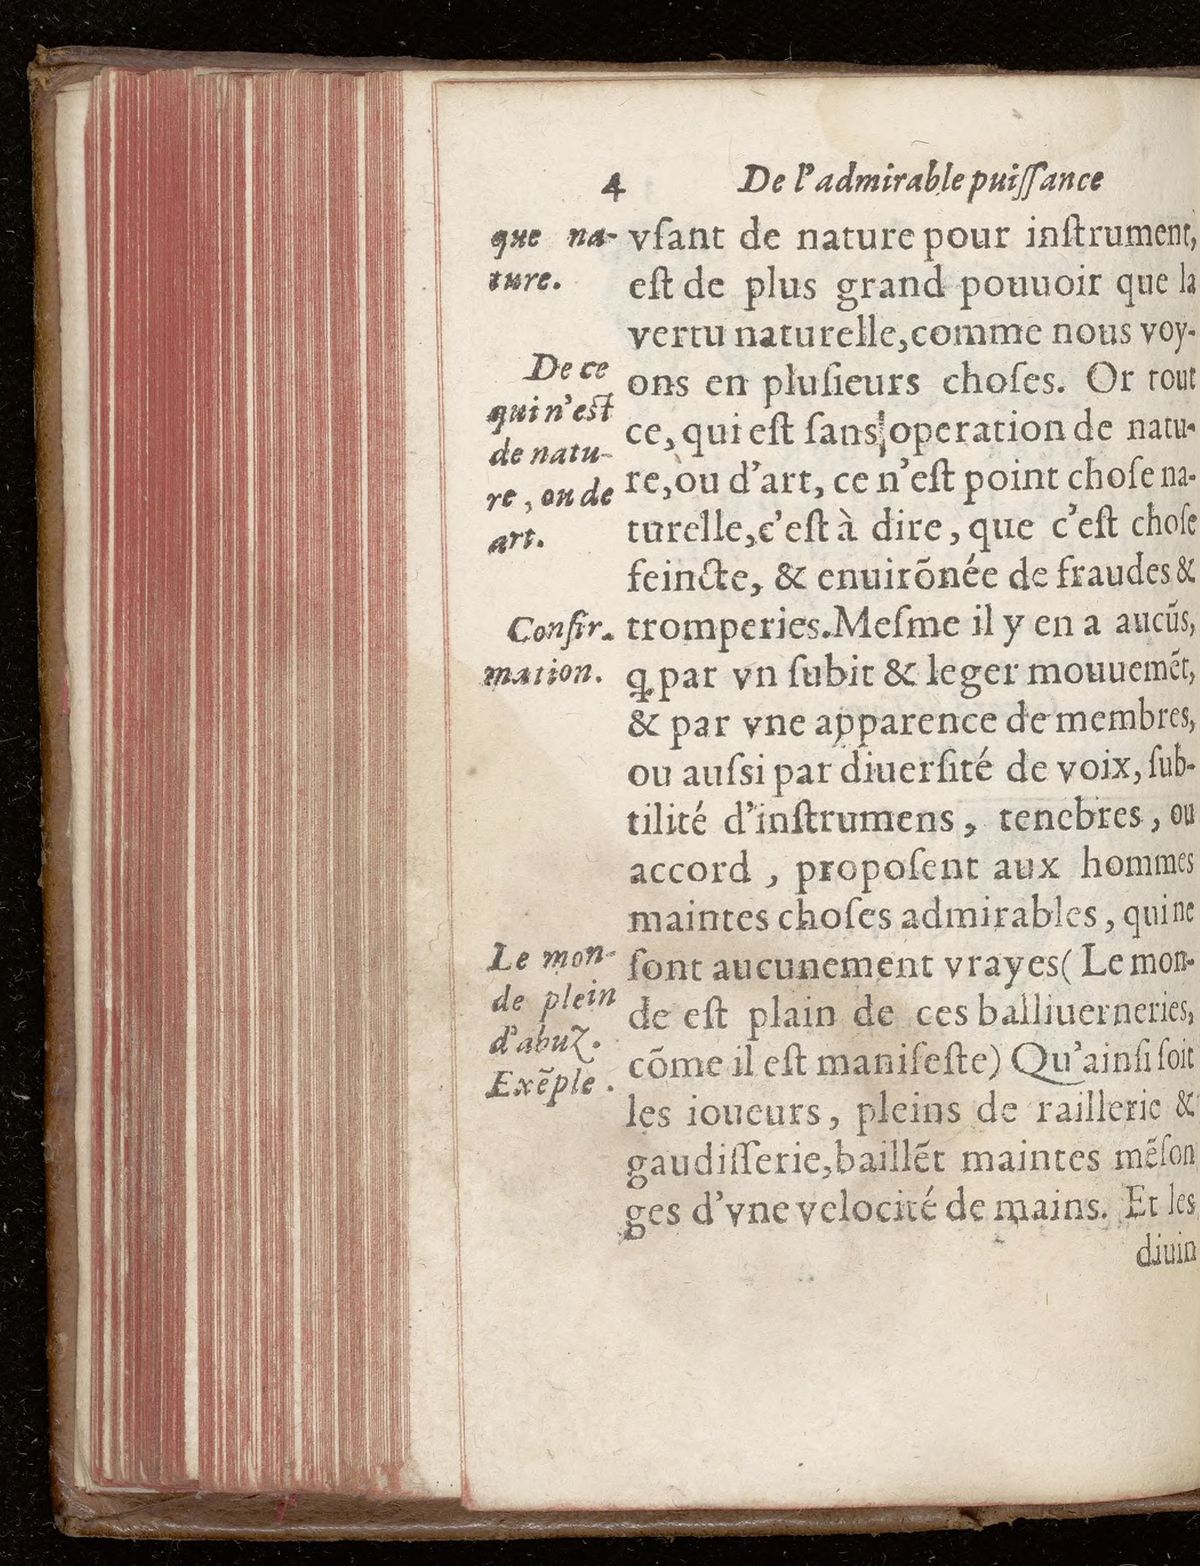 4 De l'admirable puiſſance
que na-
ture.
De ce
qui n'eſt
de natu-
re, ou de
art.
Confir-
mation.
Le mon-
de plein
d'abuz.
Exẽple.
vſant de nature pour inſtrument,
eſt de plus grand pouuoir que la
vertu naturelle, comme nous voy-
ons en pluſieurs choſes. Or tout
ce, qui eſt ſans operation de natu-
re, ou d'art, ce n'eſt point choſe na-
turelle, c'eſt à dire, que c'eſt choſe
feincte, & enuirõnée de fraudes &
tromperies. Meſme il y en a aucũs,
q par vn ſubit & leger mouuemẽt,
& par vne apparence de membres,
ou auſsi par diuerſité de voix, ſub-
tilité d'inſtrumens, tenebres, ou
accord, propoſent aux hommes
maintes choſes admirables, qui ne
ſont aucunement vrayes (Le mon-
de eſt plain de ces balliuerneries,
cõme il eſt manifeſte) Qu'ainſi ſoit
les ioueurs, pleins de raillerie &
gaudiſſerie, baillẽt maintes mẽſon
ges d'vne velocité de mains. Et les
diuin